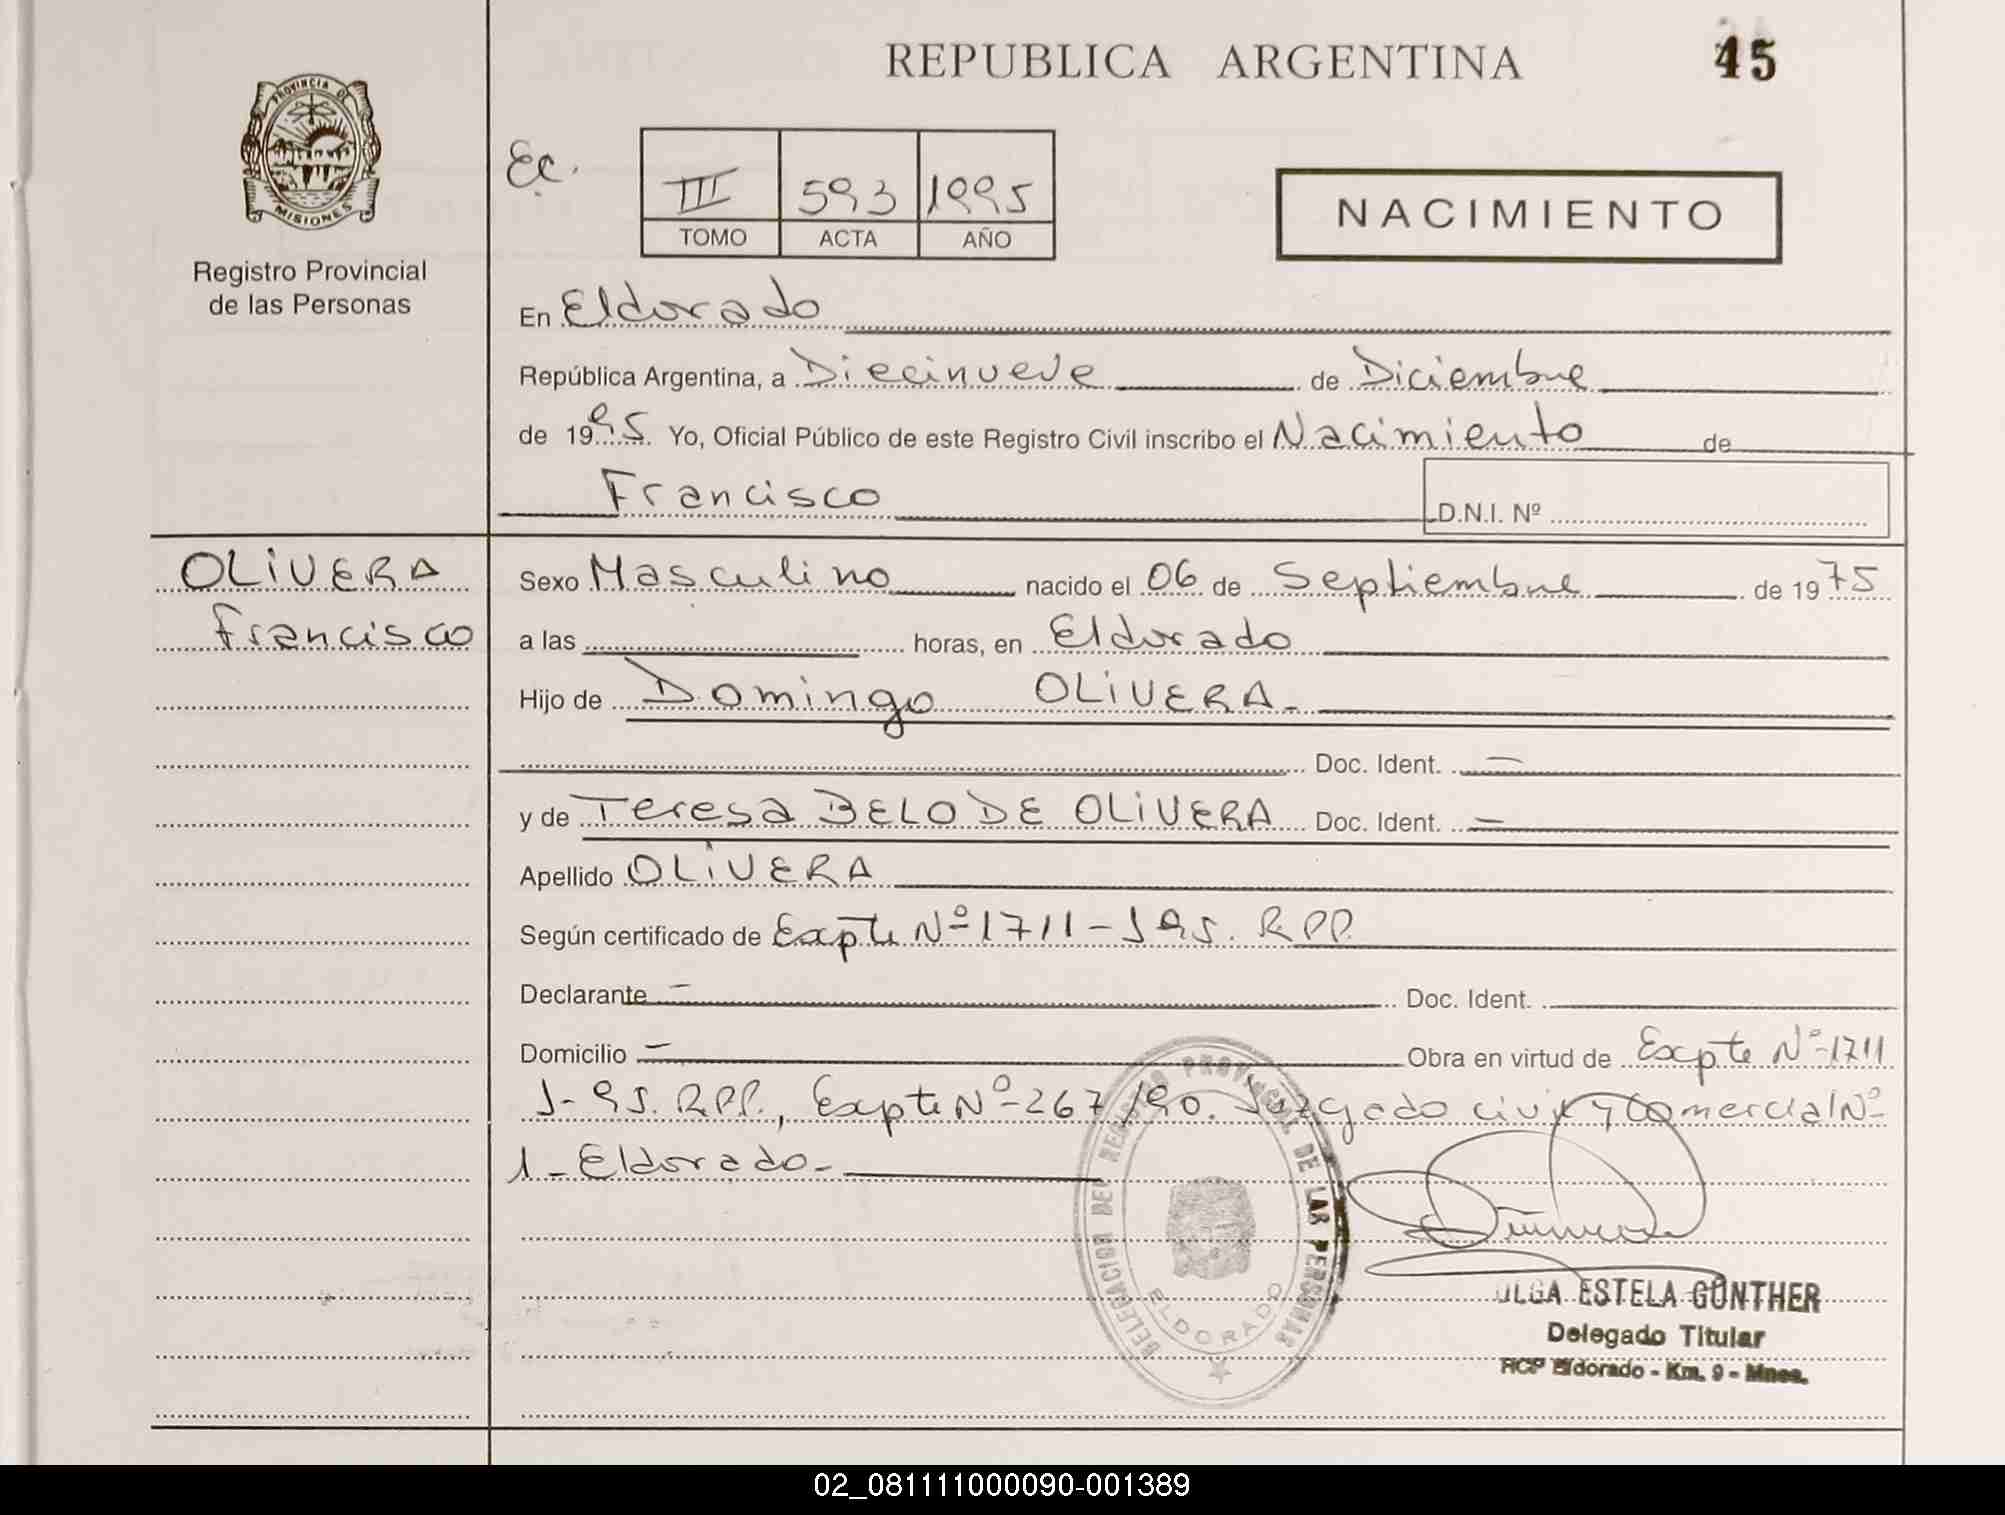 REPUBLICA ARGENTINA
45
PROVINCIA DE
MISIONES
Registro Provincial
de las Personas
Ec.
III 593 1995
TOMO ACTA AÑO
NACIMIENTO
En Eldorado
República Argentina, a Diecinueve de Diciembre
de 1995. Yo, Oficial Público de este Registro Civil inscribo el Nacimiento de
Francisco
D.N.I. Nº
OLIVERA
Francisco
Sexo Masculino nacido el 06 de Septiembre de 1975
a las horas, en Eldorado
Hijo de Domingo OLIVERA-
Doc. Ident. -
y de Teresa BELO DE OLIVERA Doc. Ident. -
Apellido OLIVERA
Según certificado de Expte Nº 1711-J 95. RPP.
Declarante - Doc. Ident.
Domicilio - Obra en virtud de Expte Nº-1711
J-95. R.P.P., Expte Nº-267/90. Juzgado civil y Comercial Nº
1-Eldorado-
DELEGACION DEL REGISTRO PROVINCIAL DE LAS PERSONAS
ELDORADO
OLGA ESTELA GUNTHER
Delegado Titular
RCP Eldorado - Km. 9 - Mnes.
02_081111000090-001389